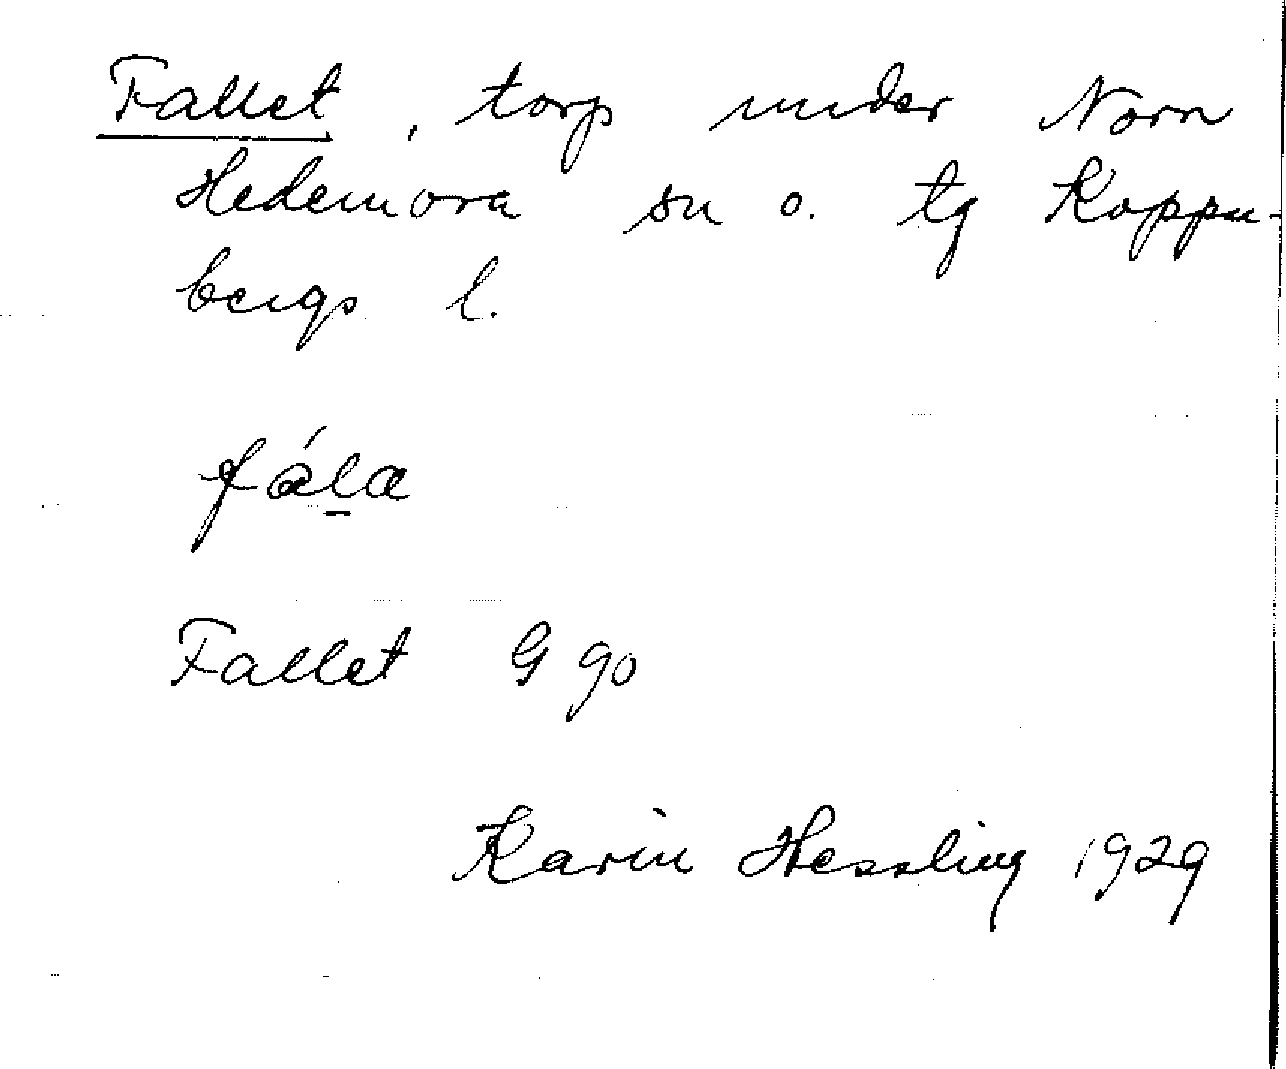 Fallet, torp under Norn
Hedemora sn o. tg Koppa-
bergs l.
fál̲a
Fallet G 90
Karin Hessling 1929